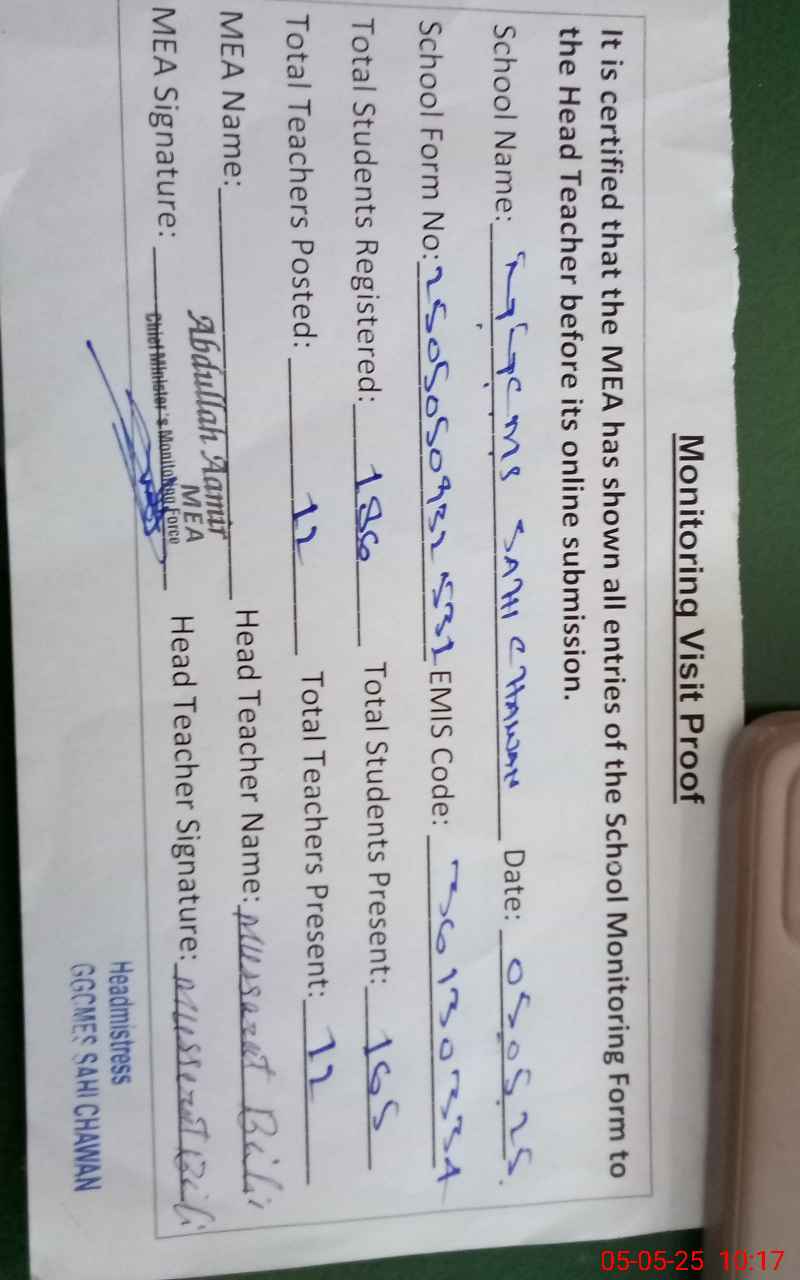 Monitoring Visit Proof
It is certified that the MEA has shown all entries of the School Monitoring Form to
the Head Teacher before its online submission.
School Name: GGCMS SAHI CHAWAN Date: 050525.
School Form No: EMIS Code:
Total Students Registered: 186 Total Students Present: 165
Total Teachers Posted: 12 Total Teachers Present: 12
MEA Name: Abdullah Aamir Head Teacher Name: Mussarat Bibi
MEA
MEA Signature: Chief Minister's Monitoring Force Head Teacher Signature: Mussarat Bibi
Headmistress
GGCMES SAHI CHAWAN
05-05-25 10:17